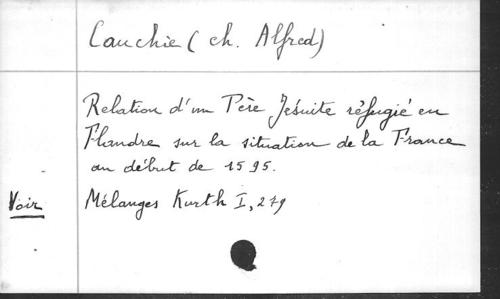 Cauchie (ch. Alfred)
Relation d'un Père Jésuite réfugié en
Flandre sur la situation de la France
au début de 1595.
Voir Mélanges Kurth I, 279